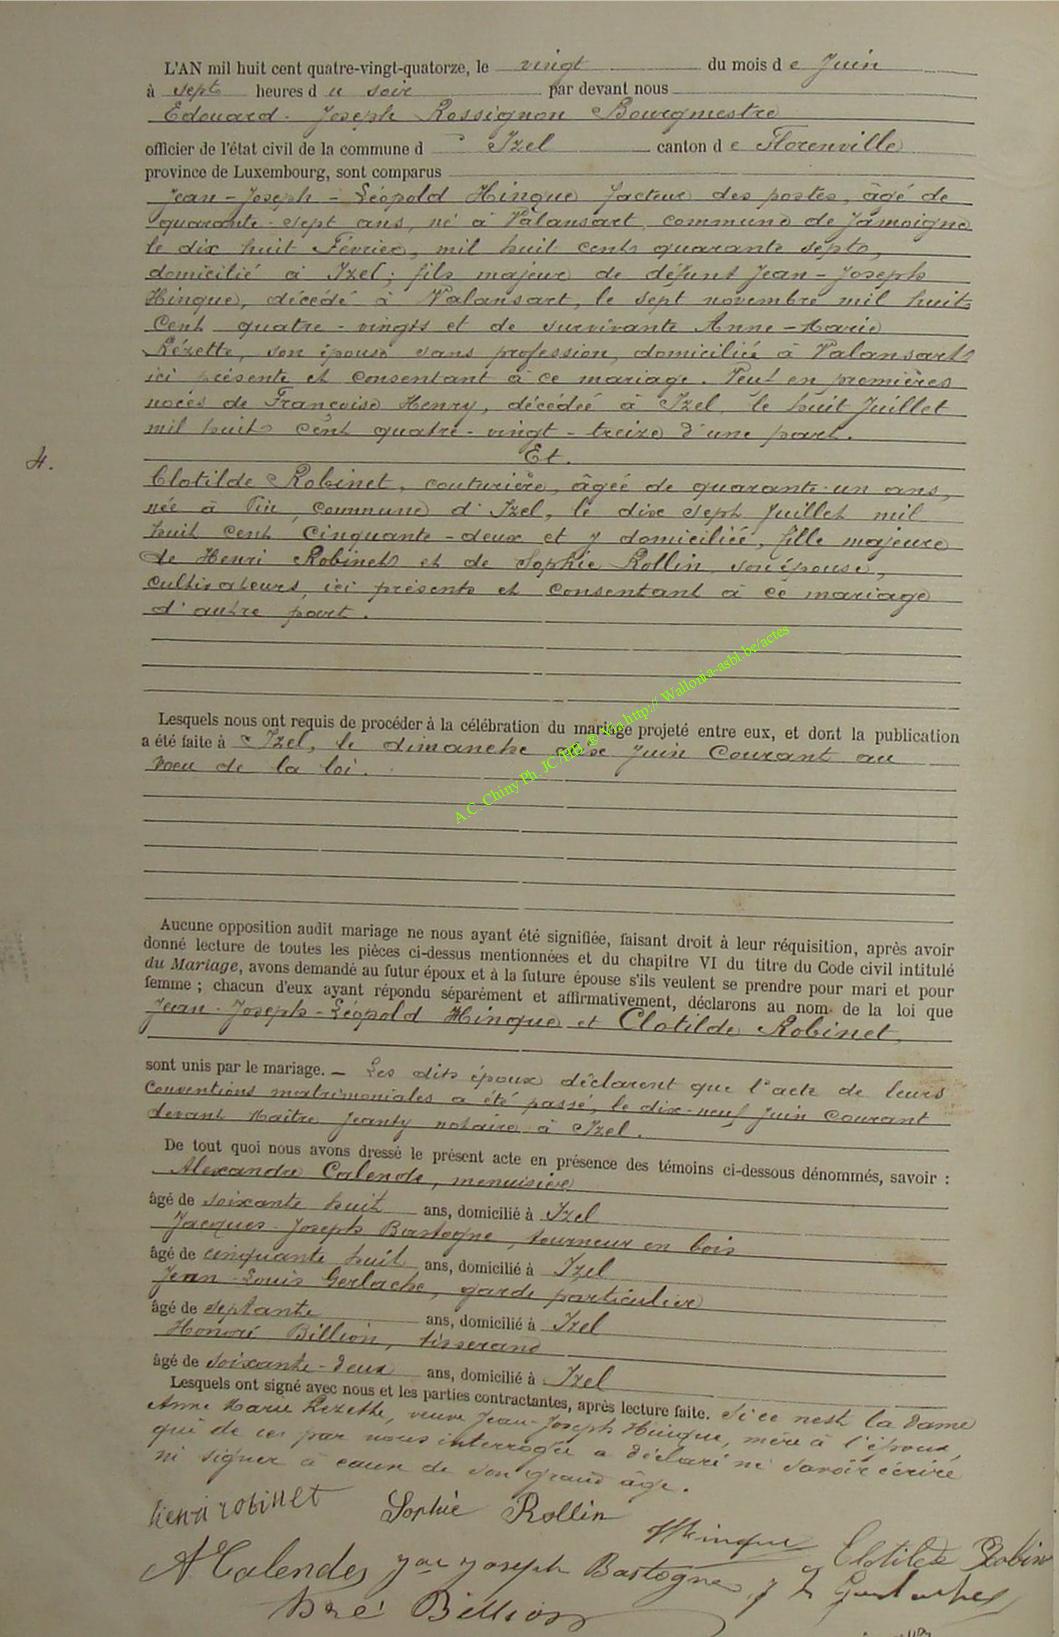 L'AN mil huit cent quatre-vingt-quatorze, le vingt du mois de Juin
à sept heures du soir par devant nous
Edouard-Joseph Rossignon Bourgmestre
officier de l'état civil de la commune d'Izel canton de Florenville
province de Luxembourg, sont comparus
Jean-Joseph-Léopold Hinque facteur des postes, âgé de
quarante-sept ans, né à Valansart commune de Jamoigne
le dix huit Février, mil huit cent quarante sept,
domicilié à Izel; fils majeur de défunt Jean-Joseph
Hinque, décédé à Valansart, le sept novembre mil huit
cent quatre-vingts et de survivante Anne-Marie
Rézette, son épouse sans profession, domiciliée à Valansart
ici présente et consentant à ce mariage. Veuf en premières
noces de Françoise Henry, décédée à Izel, le huit Juillet
mil huit cent quatre-vingt-treize d'une part.
4.
Et.
Clotilde Robinet, couturière, âgée de quarante-un ans,
née à Pin, commune d'Izel, le dix sept Juillet mil
huit cent cinquante-deux et y domiciliée, fille majeure
de Henri Robinet et de Sophie Rollin, son épouse,
cultivateurs, ici présents et consentant à ce mariage
d'autre part.
Lesquels nous ont requis de procéder à la célébration du mariage projeté entre eux, et dont la publication
a été faite à Izel, le dimanche Juin Courant au
voeu de la loi.
A.C. Chiny Ph. JC http:// Wallonia-asbl.be/actes
Aucune opposition audit mariage ne nous ayant été signifiée, faisant droit à leur réquisition, après avoir
donné lecture de toutes les pièces ci-dessus mentionnées et du chapitre VI du titre du Code civil intitulé
du Mariage, avons demandé au futur époux et à la future épouse s'ils veulent se prendre pour mari et pour
femme ; chacun d'eux ayant répondu séparément et affirmativement, déclarons au nom de la loi que
Jean-Joseph-Léopold Hinque et Clotilde Robinet,
sont unis par le mariage. — Les dits époux déclarent que l'acte de leurs
Conventions matrimoniales a été passé, le dix-neuf Juin Courant
devant Maître Jeanty notaire à Izel.
De tout quoi nous avons dressé le présent acte en présence des témoins ci-dessous dénommés, savoir :
Alexandre Calende, menuisier
âgé de soixante huit ans, domicilié à Izel
Jacques-Joseph Bastogne, tourneur en bois
âgé de cinquante huit ans, domicilié à Izel
Jean-Louis Gerlache, garde particulier
âgé de septante ans, domicilié à Izel
Honoré Billion, tisserand
âgé de soixante-deux ans, domicilié à Izel
Lesquels ont signé avec nous et les parties contractantes, après lecture faite. Si ce nest la dame
Anne Marie Rezette, veuve Jean-Joseph Hinque, mère à l'époux
qui de ce par nous interrogée a déclaré ne savoir écrire
ni signer à cause de son grand âge.
henri robinet Sophie Rollin
Hinque Clotilde Robin
A Calende Jac Joseph Bastogne J L Gerlache
Hré Billion